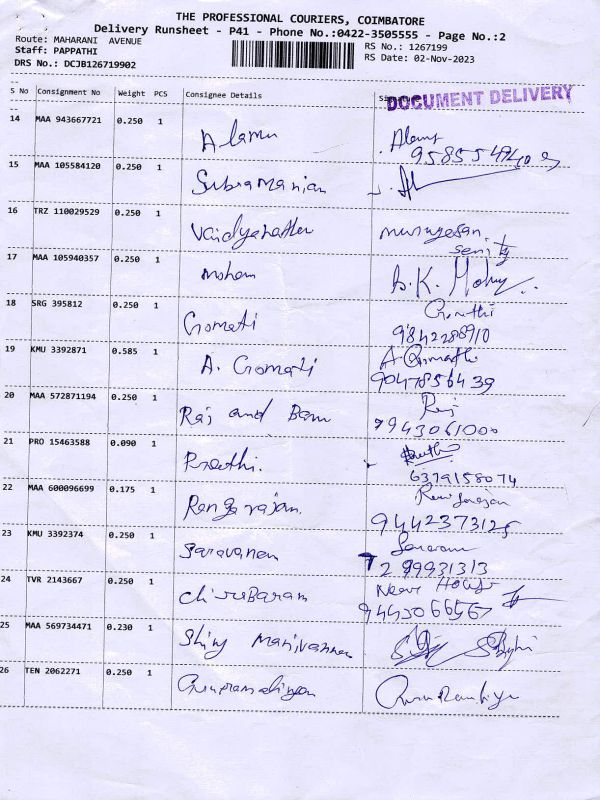 THE PROFESSIONAL COURIERS, COIMBATORE
Delivery Runsheet - P41 - Phone No.:0422-3505555 - Page No.:2
Route: MAHARANI AVENUE
RS No.: 1267199
Staff: PAPPATHI
RS Date: 02-Nov-2023
DRS No.: DCJB126719902
S No Consignment No Weight PCS Consignee Details
DOCUMENT DELIVERY
14 MAA 943667721 0.250 1 Alamu
15 MAA 105584120 0.250 1 Subramanian
16 TRZ 110029529 0.250 1 murugesan
17 MAA 105940357 0.250 1 mohan
18 SRG 395812 0.250 1 Gomati
9842288910
19 KMU 3392871 0.585 1 A. Gomati A. Gomathi
9047856439
20 MAA 572871194 0.250 1 Raj and Ram Raj
7943061000
21 PRO 15463588 0.090 1 Preethi.
6379158074
22 MAA 600096699 0.175 1 Rengarajan.
9442373125
23 KMU 3392374 0.250 1 Saravanan
7299931313
24 TVR 2143667 0.250 1
25 MAA 569734471 0.230 1
26 TEN 2062271 0.250 1